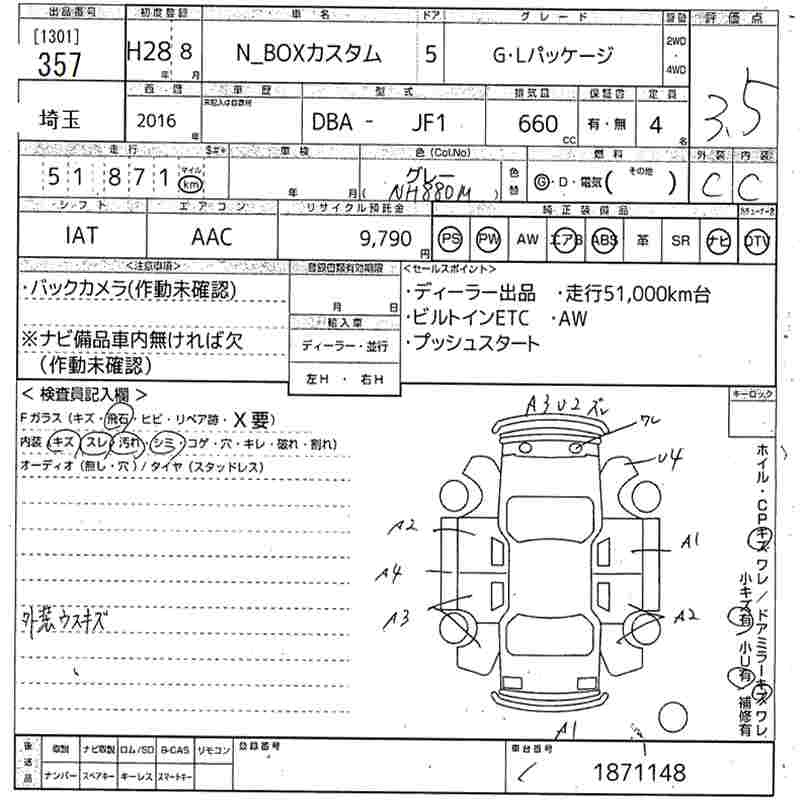 出品番号 初度登録 車名 ドア グレード 評価点
[1301]
357 H28年 8月 N_BOXカスタム 5 G・Lパッケージ 2WD・4WD 3.5
西暦 車歴 型式 排気量 保証書 定員
未記入は自家用
埼玉 2016年 DBA - JF1 660cc 有・無 4名
走行 車検 色(Col.No) 燃料 外装 内装
51871 マイル km 年 月 グレー (NH880M) 色替 G・D・電気( その他 ) C C
シフト エアコン リサイクル預託金 純正装備品
IAT AAC 9,790円 PS PW AW エアB ABS 革 SR ナビ DTV
<注意事項> 登録書類有効期限 <セールスポイント>
・バックカメラ(作動未確認) 月 日 ・ディーラー出品 ・走行51,000km台
輸入車 ・ビルトインETC ・AW
※ナビ備品車内無ければ欠 ディーラー・並行 ・プッシュスタート
(作動未確認) 左H ・ 右H
<検査員記入欄> キーロック
Fガラス(キズ・飛石・ヒビ・リペア跡・X要)
内装(キズ・スレ・汚れ・シミ・コゲ・穴・キレ・破れ・割れ)
オーディオ(無し・穴)/タイヤ(スタッドレス)
A3 U2 ズレ
ワレ
U4
A2
A1
A4
A3
A2
外装ウスキズ
A1
ホイル・CPキズワレ/ドアミラーキズワレ
小キズ有/小U有/補修有
後送品 取説 ナビ取説 ロム/SD B-CAS リモコン 登録番号 車台番号
ナンバー スペアキー キーレス スマートキー 1871148